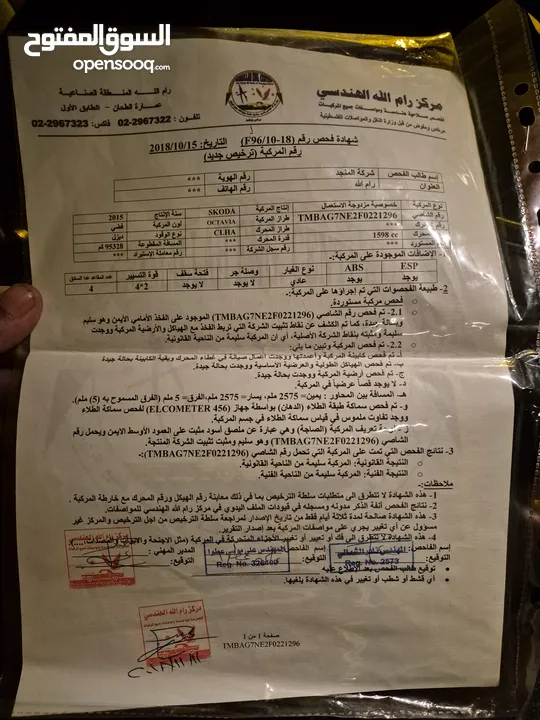 السوق المفتوح
opensooq.com
مركز رام الله الهندسي
فحص سلامة هندسية ومواصفات جميع المركبات
مرخص ومفوض من قبل وزارة النقل والمواصلات الفلسطينية
رام الله المنطقة الصناعية
عمارة الطحان - الطابق الأول
تلفون: 02-2967322 فاكس: 02-2967323
شهادة فحص رقم (F96/10-18) التاريخ: 2018/10/15
رقم المركبة (ترخيص جديد)
إسم طالب الفحص شركة المنجد رقم الهوية ***
العنوان رام الله رقم الهاتف ***
نوع المركبة خصوصية مزدوجة الاستعمال إنتاج المركبة SKODA سنة الإنتاج 2015
رقم الشاصي TMBAG7NE2F0221296 طراز المركبة OCTAVIA لون المركبة فضي
رقم المحرك *** طراز المحرك CLHA نوع الوقود ديزل
حجم المحرك 1598 cc قدرة المحرك *** المسافة المقطوعة 95328 كم
المستورد *** رقم سجل الشركة *** رقم معاملة الإستيراد ***
1- الإضافات الموجودة على المركبة:
ESP ABS نوع الغيار وصلة جر فتحة سقف قوة التسيير عدد المقاعد عدا السائق
يوجد يوجد عادي لا يوجد لا يوجد 2*4 4
2- طبيعة الفحوصات التي تم إجراؤها على المركبة:
فحص مركبة مستوردة.
2.1 – تم فحص رقم الشاصي (TMBAG7NE2F0221296) الموجود على الفخذ الأمامي الأيمن وهو سليم
وبحالة جيدة، كما تم الكشف عن نقاط تثبيت الشركة التي تربط الفخذ مع الهياكل والأرضية المركبة ووجدت
سليمة ومثبتة بنقاط الشركة الأصلية، أي ان المركبة سليمة من الناحية القانونية.
2.2 – تم فحص المركبة وتبين ما يلي:
أ- تم فحص كابينة المركبة وأعمدتها ووجدت أعمال صيانة في غطاء المحرك وبقية الكابينة بحالة جيدة.
ب- تم فحص الهياكل الطولية والعرضية الأساسية ووجدت بحالة جيدة.
ج- تم فحص أرضية المركبة ووجدت بحالة جيدة.
د- لا يوجد قصاً عرضية في المركبة.
هـ- المسافة بين المحاور: يمين= 2575 ملم، يسار= 2575 ملم،الفرق= 5 ملم (الفرق المسموح به (5) ملم).
و- تم فحص سماكة طبقة الطلاء (الدهان) بواسطة جهاز (ELCOMETER 456) لفحص سماكة الطلاء
ووجد تفاوت ملموس في قياس سماكة الطلاء في جسم المركبة.
تعريف المركبة (الصاجة) وهي عبارة عن ملصق أسود مثبت على العمود الأوسط الايمن ويحمل رقم
الشاصي (TMBAG7NE2F0221296) وهو سليم ومثبت تثبيت الشركة المنتجة.
3- نتائج الفحص التي تمت على المركبة التي تحمل رقم الشاصي (TMBAG7NE2F0221296):-
النتيجة القانونية: المركبة سليمة من الناحية القانونية.
النتيجة الفنية: المركبة سليمة من الناحية الفنية.
ملاحظات:
1- هذه الشهادة لا تتطرق الى متطلبات سلطة الترخيص بما في ذلك معاينة رقم الهيكل ورقم المحرك مع خارطة المركبة.
2- نتائج الفحص آنفة الذكر مدونه ومسجله في قيودات الملف اليدوي في مركز رام الله الهندسي للمواصلات.
3- هذه الشهادة صالحة لمدة ثلاثة أيام فقط من تاريخ الإصدار لمراجعة سلطة الترخيص من اجل الترخيص و المركز غير
مسؤول عن أي تغيير يجري على مواصفات المركبة بعد إصدار التقرير.
4- هذه الشهادة لا تتطرق الى فك أو تغيير الأجزاء المتحركة في المركبة (مثل الاجنحة والابواب
إسم الفاحص: إسم الفاحص: المدير المهني:
التوقيع: Reg. No. 2573 Reg. No. التوقيع:
توقيع طالب الفحص بعد الاطلاع عليه
أي قشط أو شطب أو تغيير في هذه الشهادة يلغيها.
مركز رام الله الهندسي
صفحة 1 من 1
TMBAG7NE2F0221296